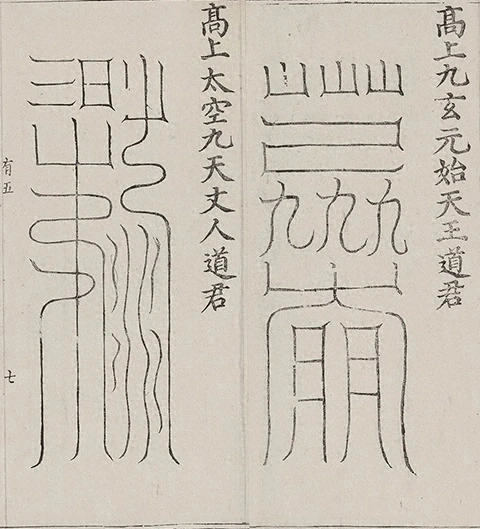 高上九玄元始天王道君
高上太空九天丈人道君
有五
七